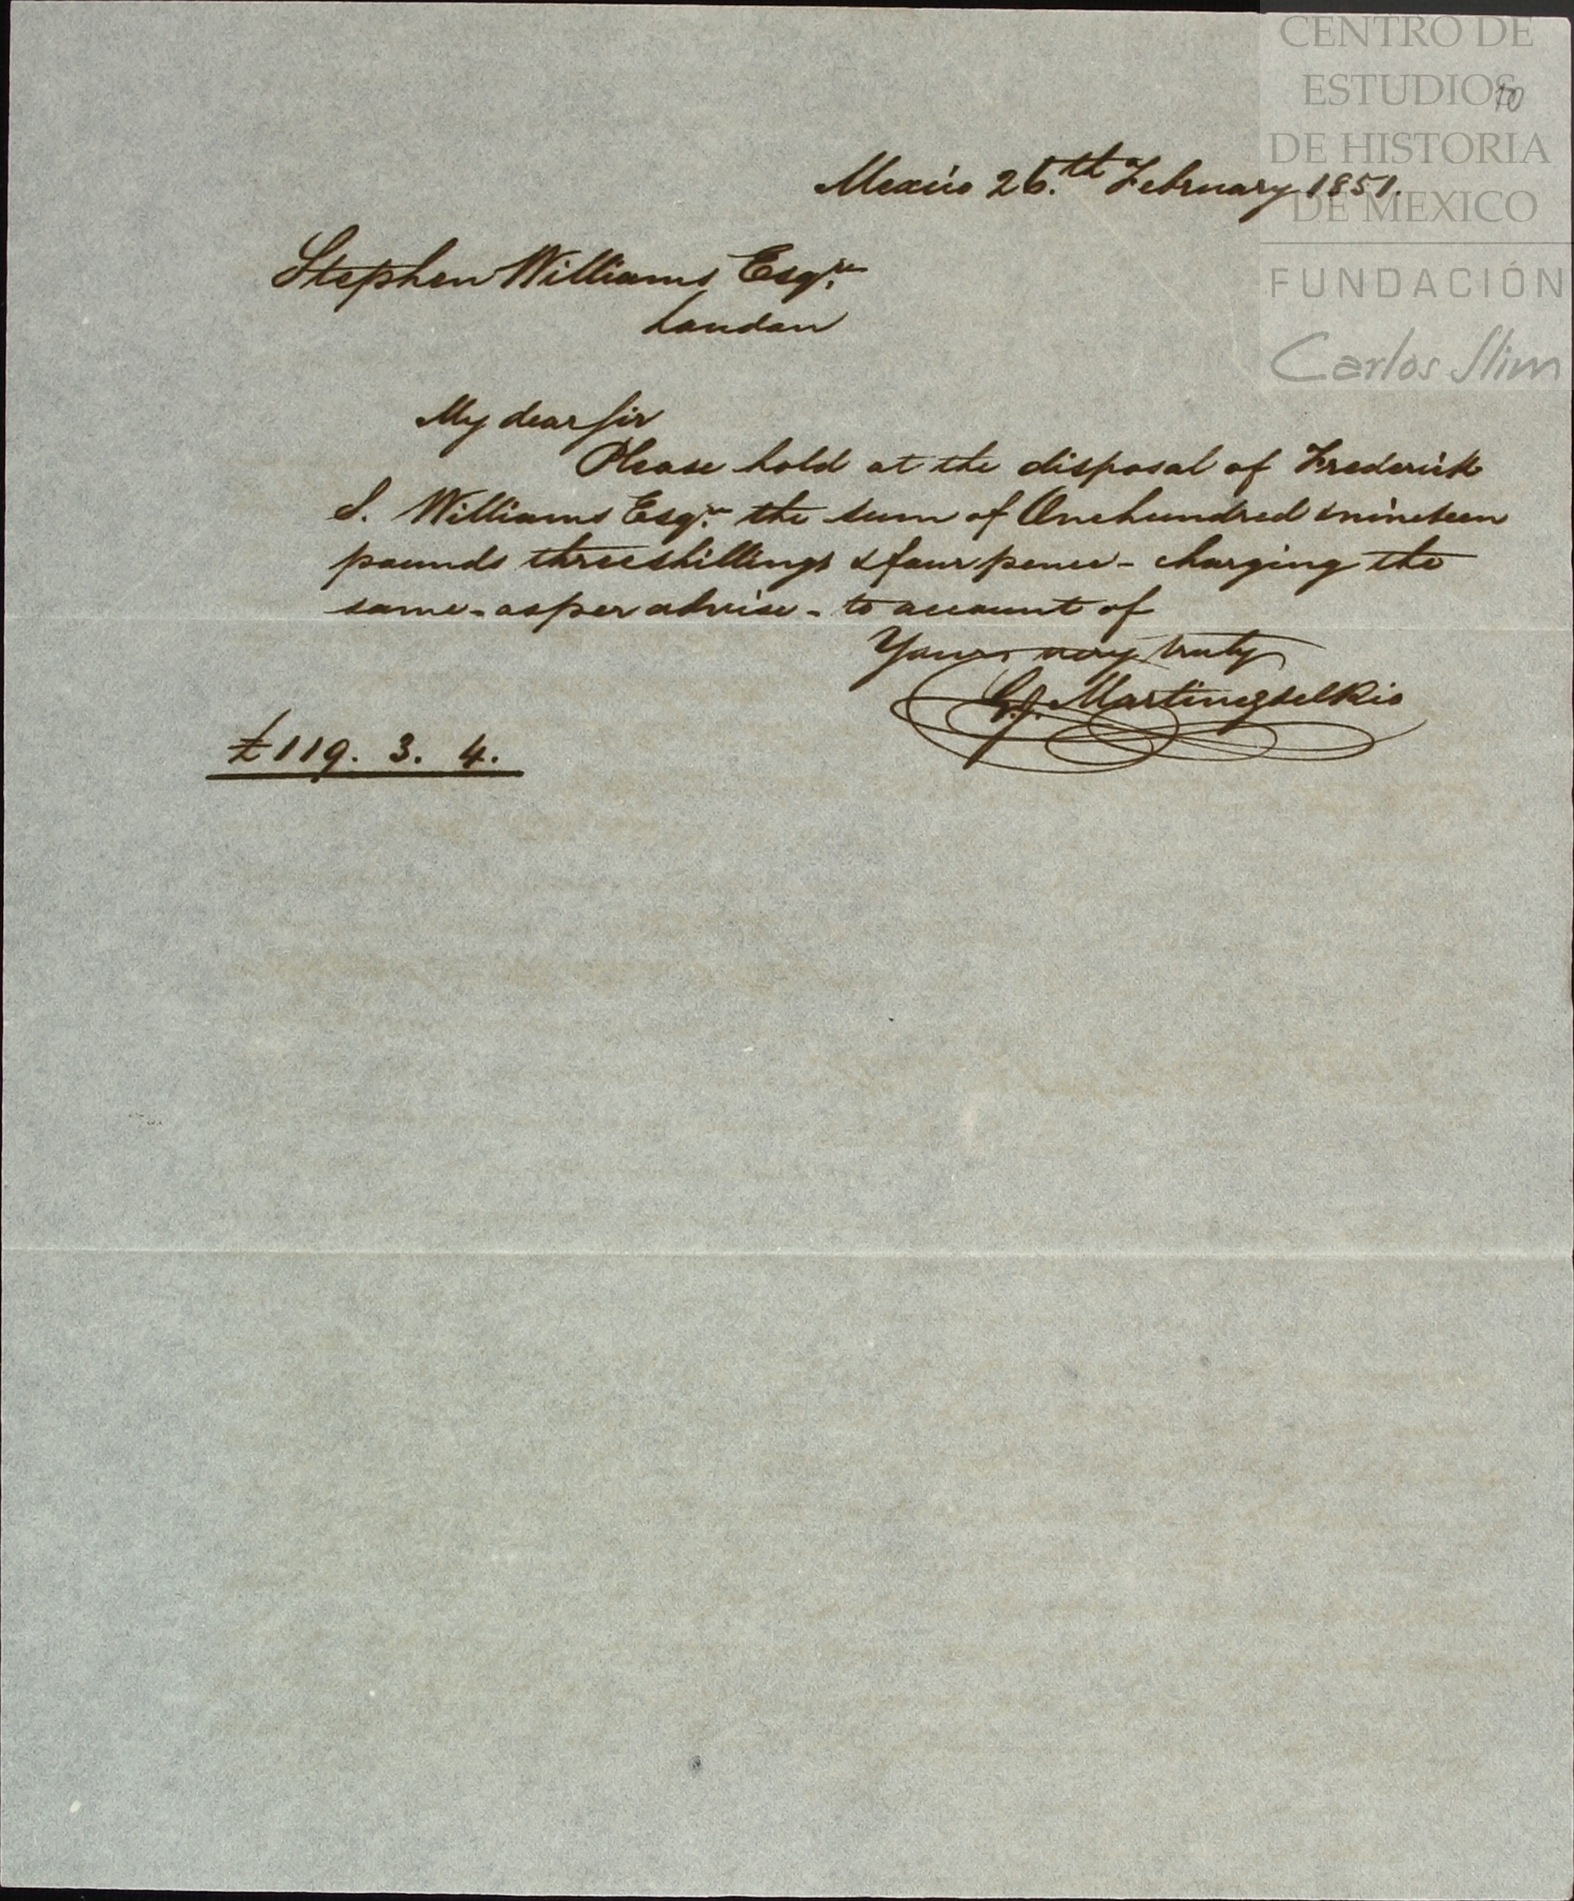 CENTRO DE
ESTUDIOS
DE HISTORIA
DE MEXICO
FUNDACIÓN
Carlos Slim
10
Mexico 26.th February 1851.
Stephen Williams Esqre.
London
My dear Sir
Please hold at the disposal of Frederick
S. Williams Esqre. the sum of One hundred & nineteen
pounds three shillings & four pence - charging the
same - as per advise - to account of
Yours very truly
G. J. Martinez del Rio
£119. 3. 4.